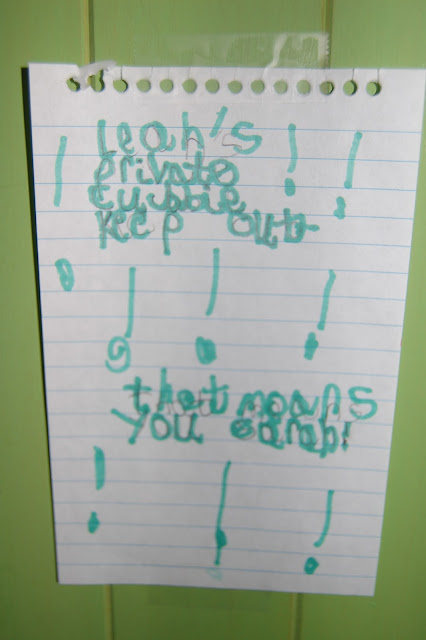 ! leah's ! !
private
cubbie
keep out
! ! !
that means
you sarah!
! ! !